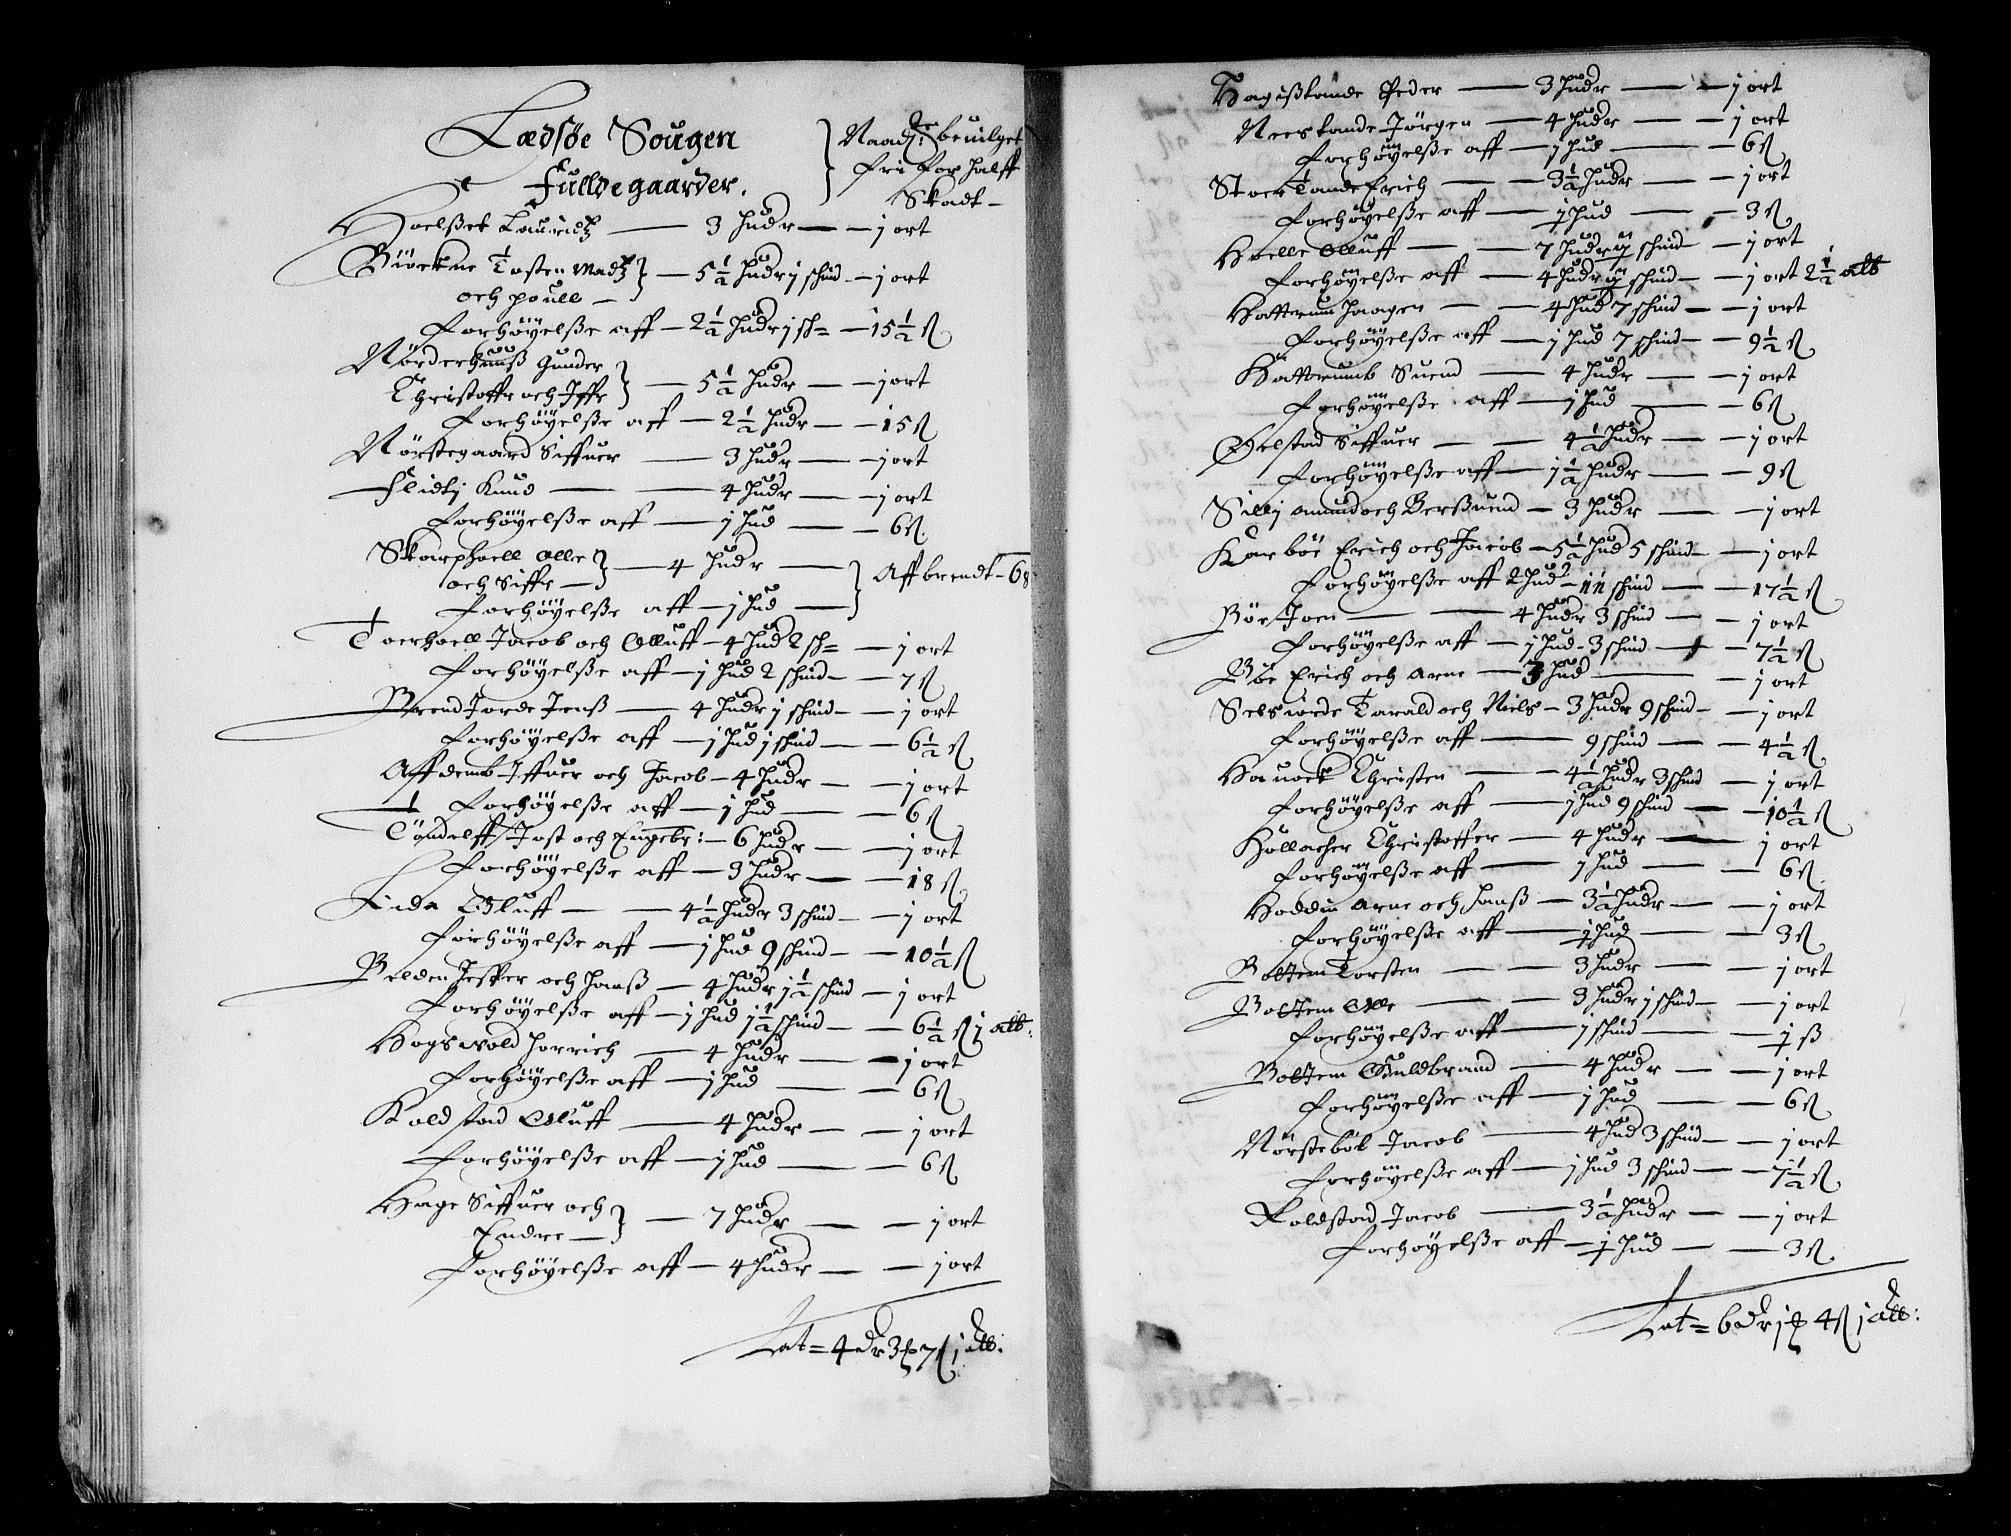 Lædsöe Sougen
Fulldegaarder.
Naad: beuilget
fri for halff
Skadt
Hoelßet Lauridtz — 3 huder — j ort
Biörkne Tosten Madtz
och poull — 5½ huder j schind — j ort
forhöyelße aff — 2½ huder j sh= — 15½ ß
Nörderhuuß Gunder
Christoffr och Iffr — 5½ hudr — j ort
forhöyelße aff — 2½ hudr — 15 ß
Nörstegaard Siffuer — 3 hudr — j ort
Flidtj Knud — 4 hudr — j ort
forhöyelße aff — j hud — 6 ß
Skarphoell Olle
och Siffr — 4 hudr
forhöyelße aff — j hud
Affbrendt — 68
Toerhoell Jacob och Olluff — 4 hud 2 sh= — j ort
forhöyelße aff — j hud 2 schind — 7 ß
Brendjorde Jenß — 4 hudr j schind — j ort
forhöyelße aff — j hud j schind — 6½ ß
Affdemb Iffuer och Jacob — 4 hudr — j ort
forhöyelße aff — j hud — 6 ß
Töndelff Jost och Engebr: — 6 hudr — j ort
forhöyelße aff — 3 hudr — 18 ß
Lida Olluff — 4½ hudr 3 schind — j ort
forhöyelße aff — j hud 9 schind — 10½ ß
Belden Jesper och Hanß — 4 hudr 1½ schind — j ort
forhöyelße aff — j hud 1½ schind — 6½ ß j alb:
Hogswold horrich — 4 hudr — j ort
forhöyelße aff — j hud — 6 ß
Koldstad Olluff — 4 hudr — j ort
forhöyelße aff — j hud — 6 ß
Hage Siffuer och
Endre — 7 hudr — j ort
forhöyelße aff — 4 hudr — j ort
Lat= 4 dr 3 ₰ 7 ß j alb:
Hagißtande Peder — 3 hudr — j ort
Neerstande Jörgen — 4 hudr — j ort
forhöyelße aff — j hud — 6 ß
Stoer Tande Erich — 3½ hudr — j ort
forhöyelße aff — ½ hud — 3 ß
Hoelle Olluff — 7 hudr ½ schind — j ort
forhöyelße aff — 4 hudr ½ schind — j ort 2½ alb
Hattrum Haagen — 4 hud 7 schind — j ort
forhöyelße aff — j hud 7 schind — 9½ ß
Hattrumb Suend — 4 hudr — j ort
forhöyelße aff — j hud — 6 ß
Öelstad Siffuer — 4½ hudr — j ort
forhöyelße aff — 1½ hudr — 9 ß
Sillj Amund och Berßuend — 3 hudr — j ort
Kareböe Erich och Jacob — 5½ hud 5 schind — j ort
forhöyelße aff 2 hud — 11 schind — 17½ ß
Böe Joen — 4 hudr 3 schind — j ort
forhöyelße aff — j hud — 3 schind — 7½ ß
Böe Erich och Arne — 3 hud — j ort
Selsiorde Tarald och Niels — 3 hudr 9 schind — j ort
forhöyelße aff — 9 schind — 4½ ß
Hauoek Christen — 4½ hudr 3 schind — j ort
forhöyelße aff — j hud 9 schind — 10½ ß
Hollacher Christoffer — 4 hudr — j ort
forhöyelße aff — j hud — 6 ß
Hoddin Arne och Hanß — 3½ hudr — j ort
forhöyelße aff — ½ hud — 3 ß
Boltem Torsten — 3 hudr — j ort
Boltem Olle — 3 hudr j schind — j ort
forhöyelße aff — j schind — ½ ß
Boltem Guldbrand — 4 hudr — j ort
forhöyelße aff — j hud — 6 ß
Nörsteböe Jacob — 4 hud 3 schind — j ort
forhöyelße aff — j hud 3 schind — 7½ ß
Roldstad Jacob — 3½ hudr — j ort
forhöyelße aff — ½ hud — 3 ß
Lat= 6 dr j ₰ 4 ß j alb: